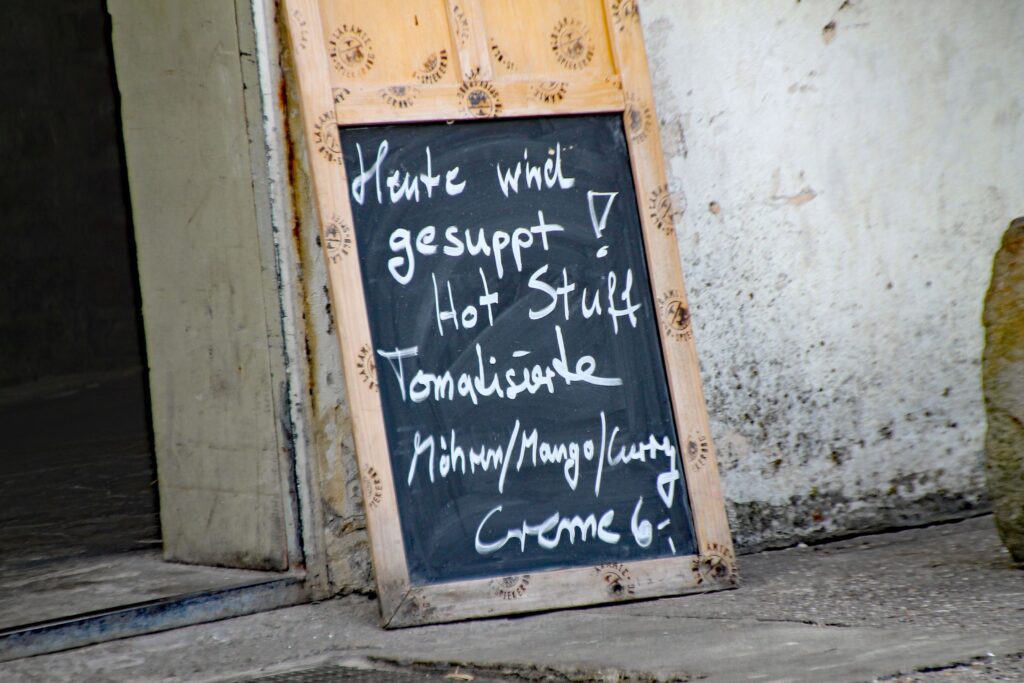 Heute wird
gesuppt!
Hot Stuff
Tomatisierte
Möhren/Mango/Curry
Creme 6,-